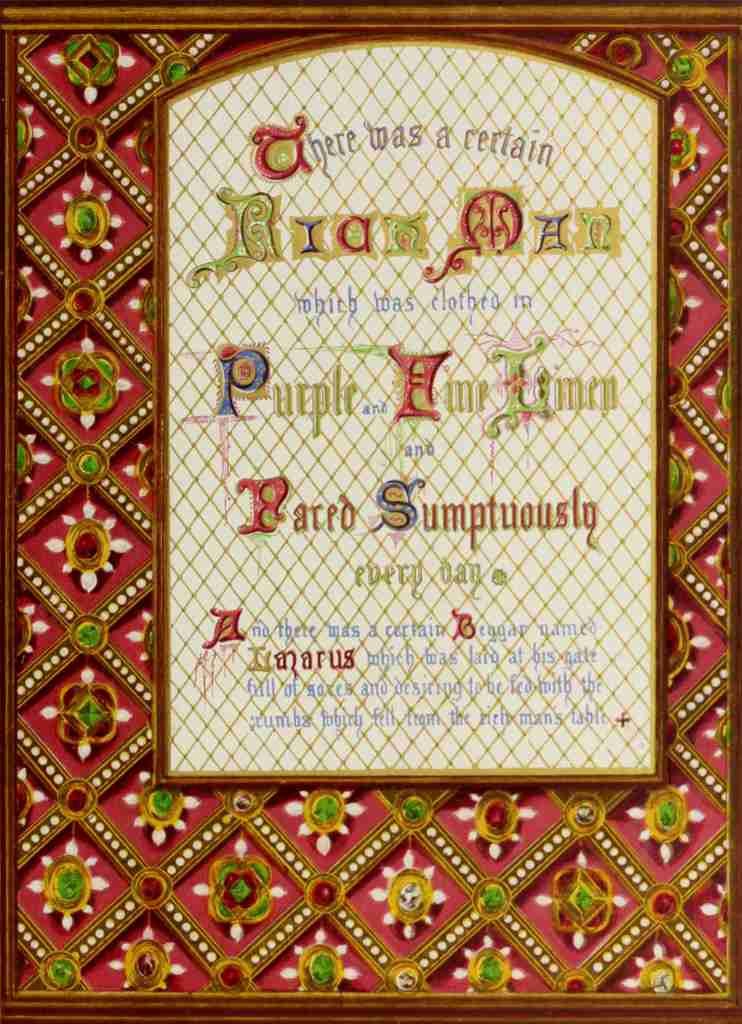 There was a certain
Rich Man
which was clothed in
Purple and Fine Linen
and
Fared Sumptuously
every day
And there was a certain Beggar named
Lazarus which was laid at his gate
full of sores and desiring to be fed with the
crumbs which fell from the rich man's table